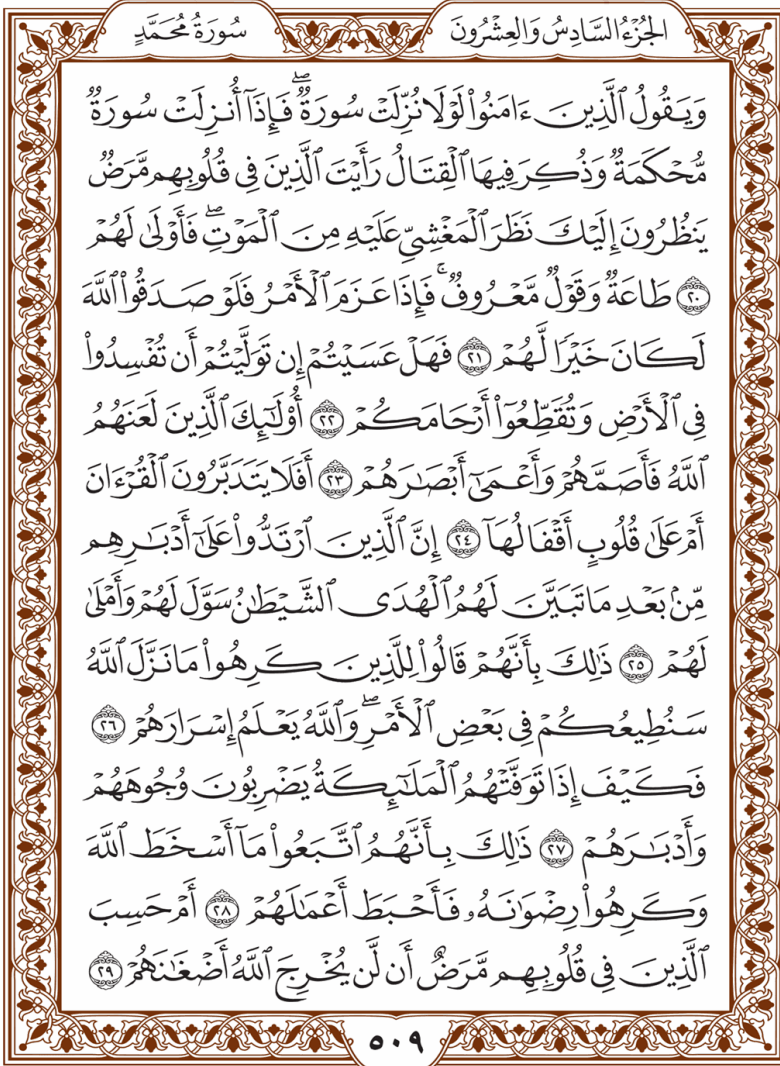 الجُزْءُ السَّادِسُ وَالعِشْرُونَ
سُورَةُ مُحَمَّدٍ
وَيَقُولُ ٱلَّذِينَ ءَامَنُوا۟ لَوْلَا نُزِّلَتْ سُورَةٌ ۖ فَإِذَآ أُنزِلَتْ سُورَةٌ
مُّحْكَمَةٌ وَذُكِرَ فِيهَا ٱلْقِتَالُ رَأَيْتَ ٱلَّذِينَ فِى قُلُوبِهِم مَّرَضٌ
يَنظُرُونَ إِلَيْكَ نَظَرَ ٱلْمَغْشِىِّ عَلَيْهِ مِنَ ٱلْمَوْتِ ۖ فَأَوْلَىٰ لَهُمْ
٢٠ طَاعَةٌ وَقَوْلٌ مَّعْرُوفٌ ۚ فَإِذَا عَزَمَ ٱلْأَمْرُ فَلَوْ صَدَقُوا۟ ٱللَّهَ
لَكَانَ خَيْرًا لَّهُمْ ٢١ فَهَلْ عَسَيْتُمْ إِن تَوَلَّيْتُمْ أَن تُفْسِدُوا۟
فِى ٱلْأَرْضِ وَتُقَطِّعُوٓا۟ أَرْحَامَكُمْ ٢٢ أُو۟لَـٰٓئِكَ ٱلَّذِينَ لَعَنَهُمُ
ٱللَّهُ فَأَصَمَّهُمْ وَأَعْمَىٰٓ أَبْصَـٰرَهُمْ ٢٣ أَفَلَا يَتَدَبَّرُونَ ٱلْقُرْءَانَ
أَمْ عَلَىٰ قُلُوبٍ أَقْفَالُهَآ ٢٤ إِنَّ ٱلَّذِينَ ٱرْتَدُّوا۟ عَلَىٰٓ أَدْبَـٰرِهِم
مِّنۢ بَعْدِ مَا تَبَيَّنَ لَهُمُ ٱلْهُدَى ٱلشَّيْطَـٰنُ سَوَّلَ لَهُمْ وَأَمْلَىٰ
لَهُمْ ٢٥ ذَٰلِكَ بِأَنَّهُمْ قَالُوا۟ لِلَّذِينَ كَرِهُوا۟ مَا نَزَّلَ ٱللَّهُ
سَنُطِيعُكُمْ فِى بَعْضِ ٱلْأَمْرِ ۖ وَٱللَّهُ يَعْلَمُ إِسْرَارَهُمْ ٢٦
فَكَيْفَ إِذَا تَوَفَّتْهُمُ ٱلْمَلَـٰٓئِكَةُ يَضْرِبُونَ وُجُوهَهُمْ
وَأَدْبَـٰرَهُمْ ٢٧ ذَٰلِكَ بِأَنَّهُمُ ٱتَّبَعُوا۟ مَآ أَسْخَطَ ٱللَّهَ
وَكَرِهُوا۟ رِضْوَٰنَهُۥ فَأَحْبَطَ أَعْمَـٰلَهُمْ ٢٨ أَمْ حَسِبَ
ٱلَّذِينَ فِى قُلُوبِهِم مَّرَضٌ أَن لَّن يُخْرِجَ ٱللَّهُ أَضْغَـٰنَهُمْ ٢٩
٥٠٩